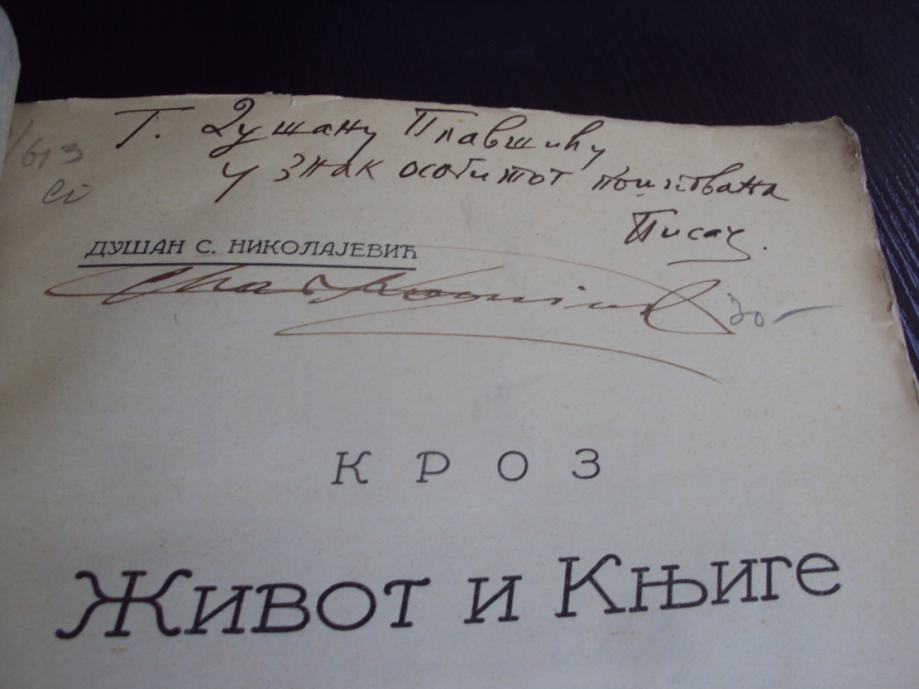 Г. Душану Плавшићу
у знак особитог поштовања
Писац.
613
ДУШАН С. НИКОЛАЈЕВИЋ
30-
КРОЗ
Живот и Књиге